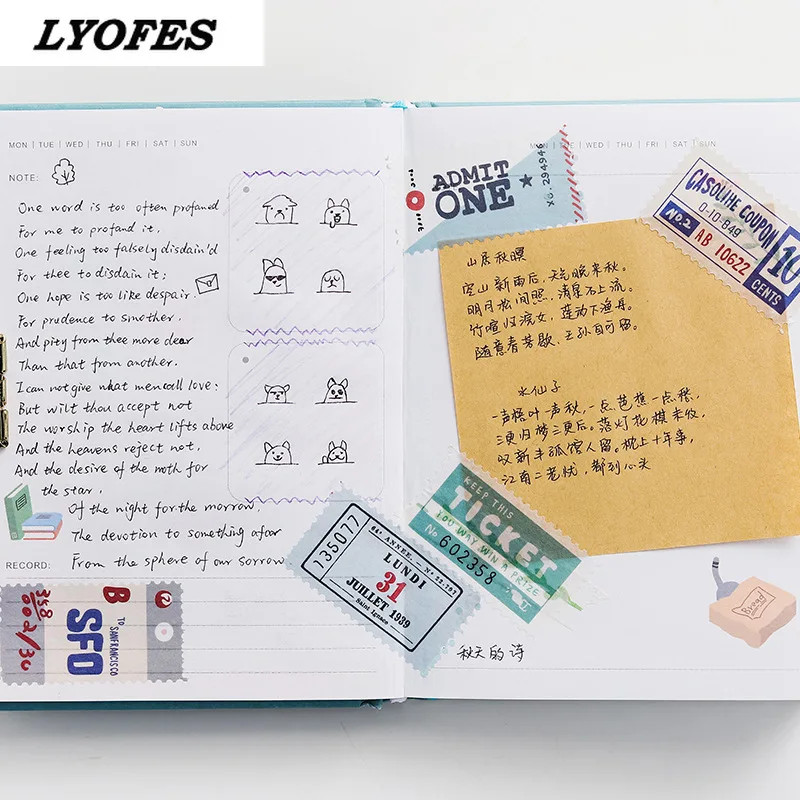 LYOFES
MON | TUE | WED | THU | FRI | SAT | SUN
NOTE:
One word is too often profaned
For me to profand it,
One feeling too falsely disdain'd
For thee to disdain it;
One hope is too like despair.
For prudence to smother,
And pity from thee more dear
Than that from another.
I can not give what men call love:
But wilt thou accept not
The worship the heart lifts above
And the heavens reject not,
And the desire of the moth for
the star,
Of the night for the morrow,
The devotion to something afar
From the sphere of our sorrow
RECORD:
B
TO
SANFRANCISCO
SFO
TUE | WED | THU | FRI | SAT | SUN
ADMIT
ONE
No.294946
GASOLINE COUPON
0-10-849
NO.2 AB 10622
10
CENTS
山居秋暝
空山新雨后，天气晚来秋。
明月松间照，清泉石上流。
竹喧归浣女，莲动下渔舟。
随意春芳歇，王孙自可留。
水仙子
一声梧叶一声秋，一点芭蕉一点愁，
三更归梦三更后。落灯花棋未收，
叹新丰孤馆人留。枕上十年事，
江南二老忧，都到心头
KEEP THIS
TICKET
YOU MAY WIN A PRIZE
No 602358
135077
64e ANNEE. - No. 22.297
LUNDI
31
JUILLET 1939
Saint Ignace
Bread
秋天的诗